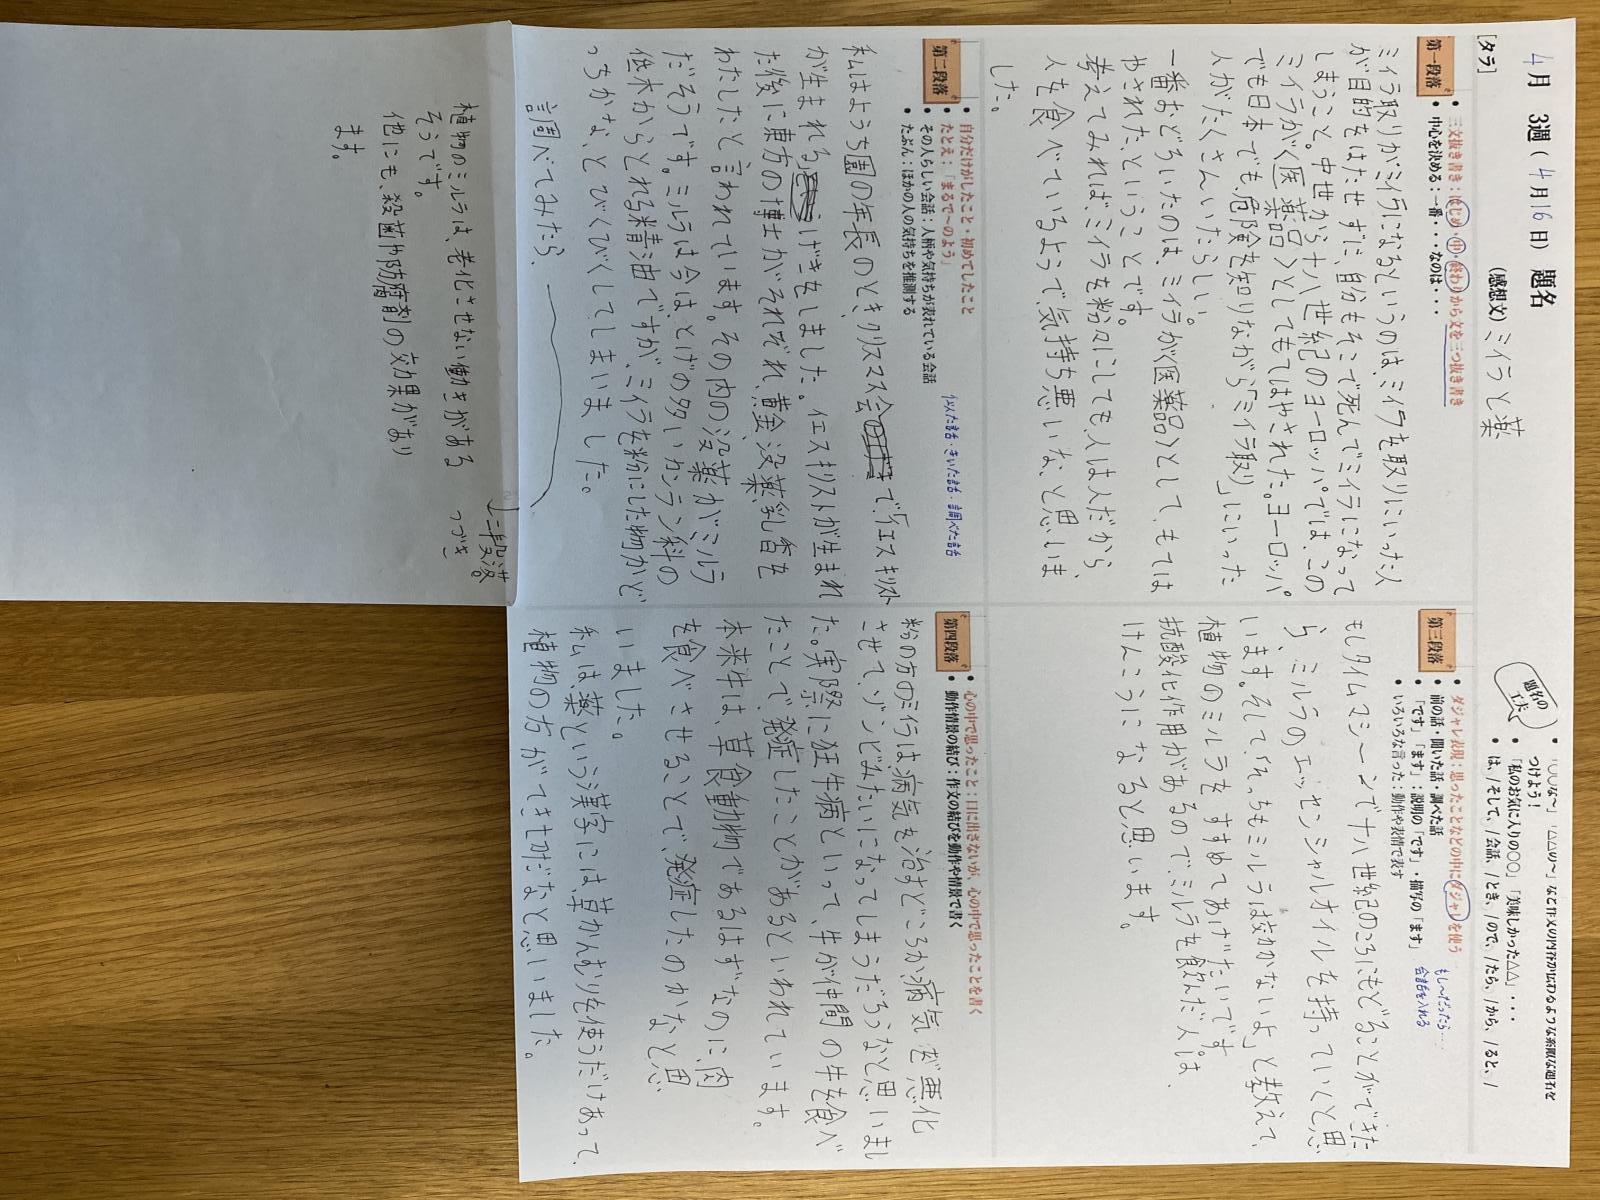 4月 3週(4月16日) 題名
(感想文) ミイラと薬
[タラ]
題名の工夫
•「○○な〜」「△△の〜」など作文の内容が伝わるような素敵な題名を
つけよう!
•「私のお気に入りの○○」「美味しかった△△」・・・
• は、/そして、/会話、/とき、/ので、/たら、/から、/ると、/
第一段落
• 三文抜き書き:はじめ・中・終わりから文を三つ抜き書き
• 中心を決める:一番・・・なのは・・・
ミイラ取りがミイラになるというのはミイラを取りにいった人
が目的をはたせずに、自分もそこで死んでミイラになって
しまうこと。中世から十八世紀のヨーロッパでは、この
ミイラが〈医薬品〉としてもてはやされた。ヨーロッパ
でも日本でも、危険を知りながら「ミイラ取り」にいった
人がたくさんいたらしい。
一番おどろいたのは、ミイラが〈医薬品〉として、もては
やされたということです。
考えてみれば、ミイラを粉々にしても人は人だから、
人を食べているようで、気持ち悪いな、と思いま
した。
第二段落
• 自分だけがしたこと・初めてしたこと
• たとえ:「まるで〜のよう」
• その人らしい会話:人柄や気持ちが表れている会話
• たぶん:ほかの人の気持ちを推測する
似た話・きいた話・調べた話
私はようち園の年長のとき、クリスマス会で、「イエスキリスト
が生まれる」げきをしました。イエスキリストが生まれ
た後に東方の博士がそれぞれ、黄金、没薬、乳香を
わたしたと言われています。その内の没薬が、ミルラ
だそうです。ミルラは今は、とげの多いカンラン科の
低木からとれる精油ですが、ミイラを粉にした物かど
っちかな、とびくびくしてしまいました。
調べてみたら、
↓二段落。
つづき
植物のミルラは、老化させない働きがある
そうです。
他にも、殺菌や防腐剤の効果があり
ます。
第三段落
• ダジャレ表現:思ったことなどの中にダジャレを使う
• 前の話・聞いた話・調べた話
• 「です」「ます」:説明の「です」・描写の「ます」
• いろいろな言った:動作や表情で表す
もし〜だったら…
会話を入れる
もしタイムマシーンで十八世紀のころにもどることができた
ら、ミルラのエッセンシャルオイルを持っていくと思
います。そして、「そっちもミルラは効かないよ」と教えて、
植物のミルラをすすめてあげたいです。
抗酸化作用があるので、ミルラを飲んだ人は、
けんこうになると思います。
第四段落
• 心の中で思ったこと:口に出さないが、心の中で思ったことを書く
• 動作情景の結び:作文の結びを動作や情景で書く
粉の方のミイラは、病気を治すどころか病気を悪化
させて、ゾンビみたいになってしまうだろうなと思いまし
た。実際に狂牛病といって牛が仲間の牛を食べ
たことで、発症したことがあるといわれています。
本来牛は、草食動物であるはずなのに、肉
を食べさせることで、発症したのかなと思
いました。
私は、薬という漢字には、草かんむりを使うだけあって、
植物の方ができせだなと思いました。